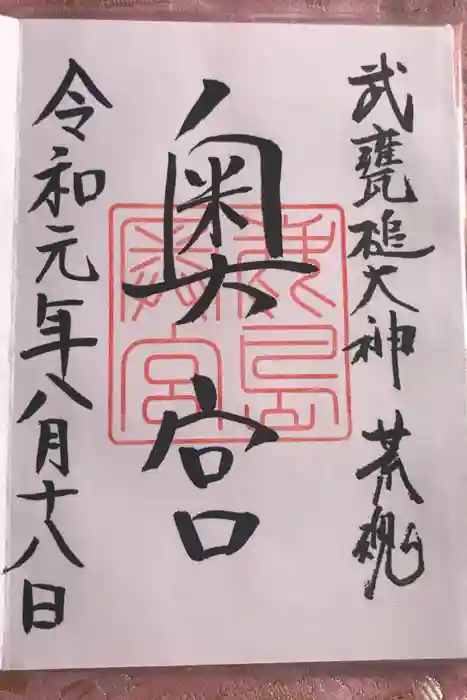 武甕槌大神 荒魂
奥宮
鹿島
奥宮
令和元年八月十八日